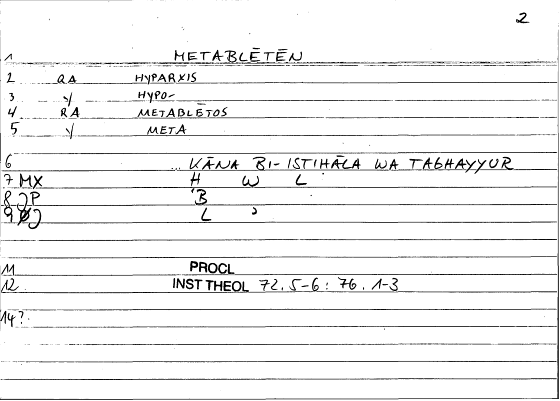 2
1 METABLĒTĒN
2 RA HYPARXIS
3 y HYPO-
4 RA METABLĒTOS
5 y META
6 KĀNA BI-ISTIHĀLA WA TAGHAYYUR
7 MX H W L
8 JP B
9 J L ʾ
11 PROCL
12 INST THEOL 72.5-6: 76.1-3
14?